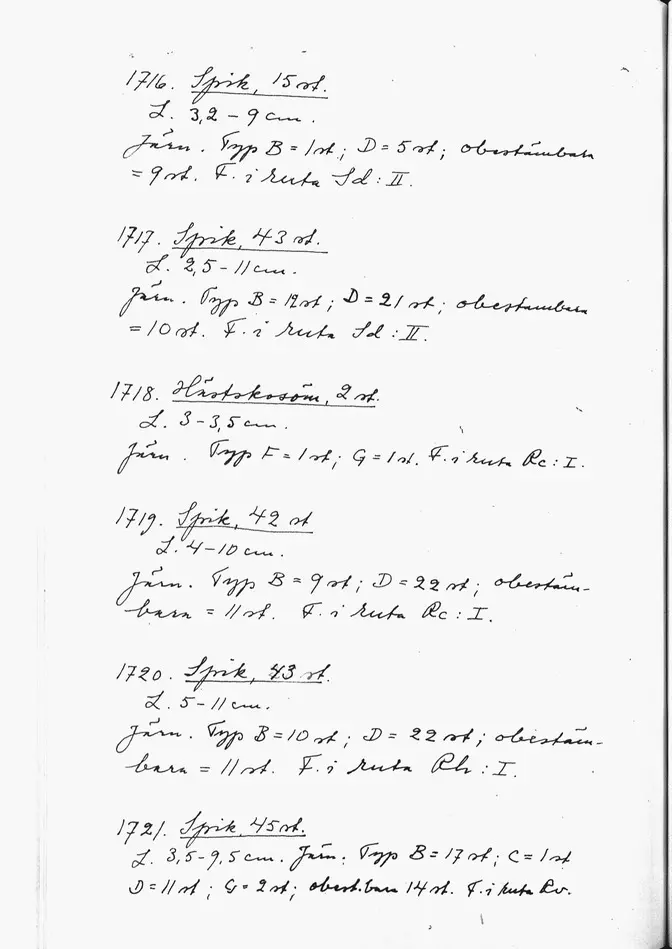 1716. Spik, 15 st.
L. 3,2 - 9 cm.
Järn. Typ B = 1 st; D = 5 st; obestämbara
= 9 st. F. i ruta Sd : II.
1717. Spik, 43 st.
L. 2,5 - 11 cm.
Järn. Typ B = 12 st; D = 21 st; obestämbara
= 10 st. F. i ruta Sd : II.
1718. Hästskosöm, 2 st.
L. 3 - 3,5 cm.
Järn. Typ F = 1 st; G = 1 st. F. i ruta Rc : I.
1719. Spik, 42 st
L. 4 - 10 cm.
Järn. Typ B = 9 st; D = 22 st; obestäm-
bara = 11 st. F. i ruta Rc : I.
1720. Spik, 43 st.
L. 5 - 11 cm.
Järn. Typ B = 10 st; D = 22 st; obestäm-
bara = 11 st. F. i ruta Rh : I.
1721. Spik, 45 st.
L. 3,5 - 9,5 cm. Järn. Typ B = 17 st; C = 1 st
D = 11 st; G = 2 st; obest.bara 14 st. F. i ruta Rv.